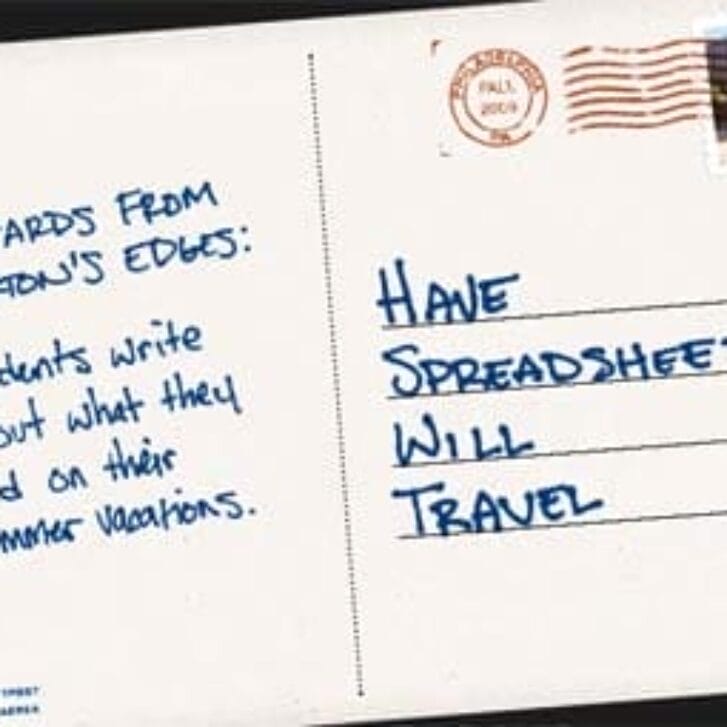 ARDS FROM
TON'S EDGES:
dents write
out what they
d on their
mmer vacations.
PHILADELPHIA
FALL
2009
PA
HAVE
SPREADSHEET
WILL
TRAVEL